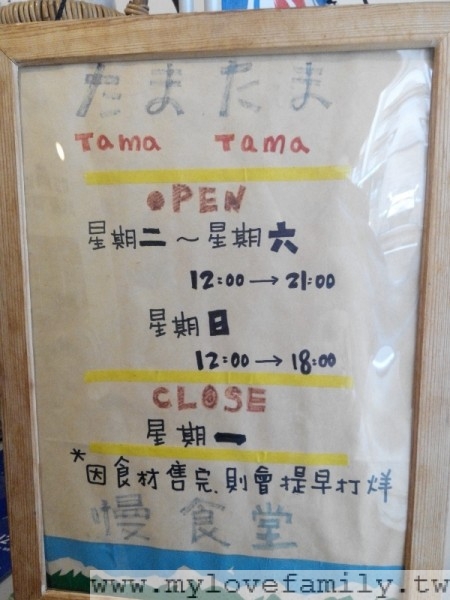 たまたま
Tama Tama
OPEN
星期二～星期六
12:00→21:00
星期日
12:00→18:00
CLOSE
星期一
*因食材售完,則會提早打烊
慢食堂
www.mylovefamily.tw